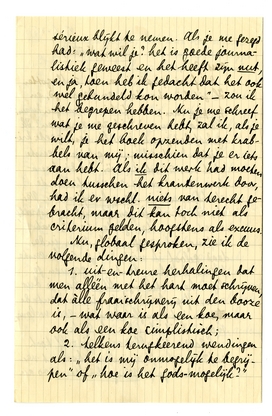 serieus blijft te nemen. Als je me gezegd
had: „wat wil je? het is goede journa-
listiek geweest en het heeft zijn nut,
en ja toen heb ik gedacht dat het ook
wel gebundeld kon worden" – zou ik
het begrepen hebben. Nu je me schreef
wat je me geschreven hebt, zal ik, als je
wilt, je het boek opzenden met krab-
bels van mij; misschien dat je er iets
aan hebt. Als ik dit werk had moeten
doen tusschen het krantenwerk door,
had ik er wschl. niets van terecht ge-
bracht, maar dit kan toch niet als
criterium gelden, hoogstens als excuus.
Nu, globaal gesproken, zie ik de
volgende dingen:
1. uit-en-treure herhalingen dat
men alléén met het hart moet schrijven,
dat alle fraaischrijverij uit den booze
is, – wat waar is als een koe, maar
ook als een koe simplistisch;
2. telkens terugkeerend wendingen
als: „het is mij onmogelijk te begrij-
pen" of „hoe is het gods-mogelijk?"